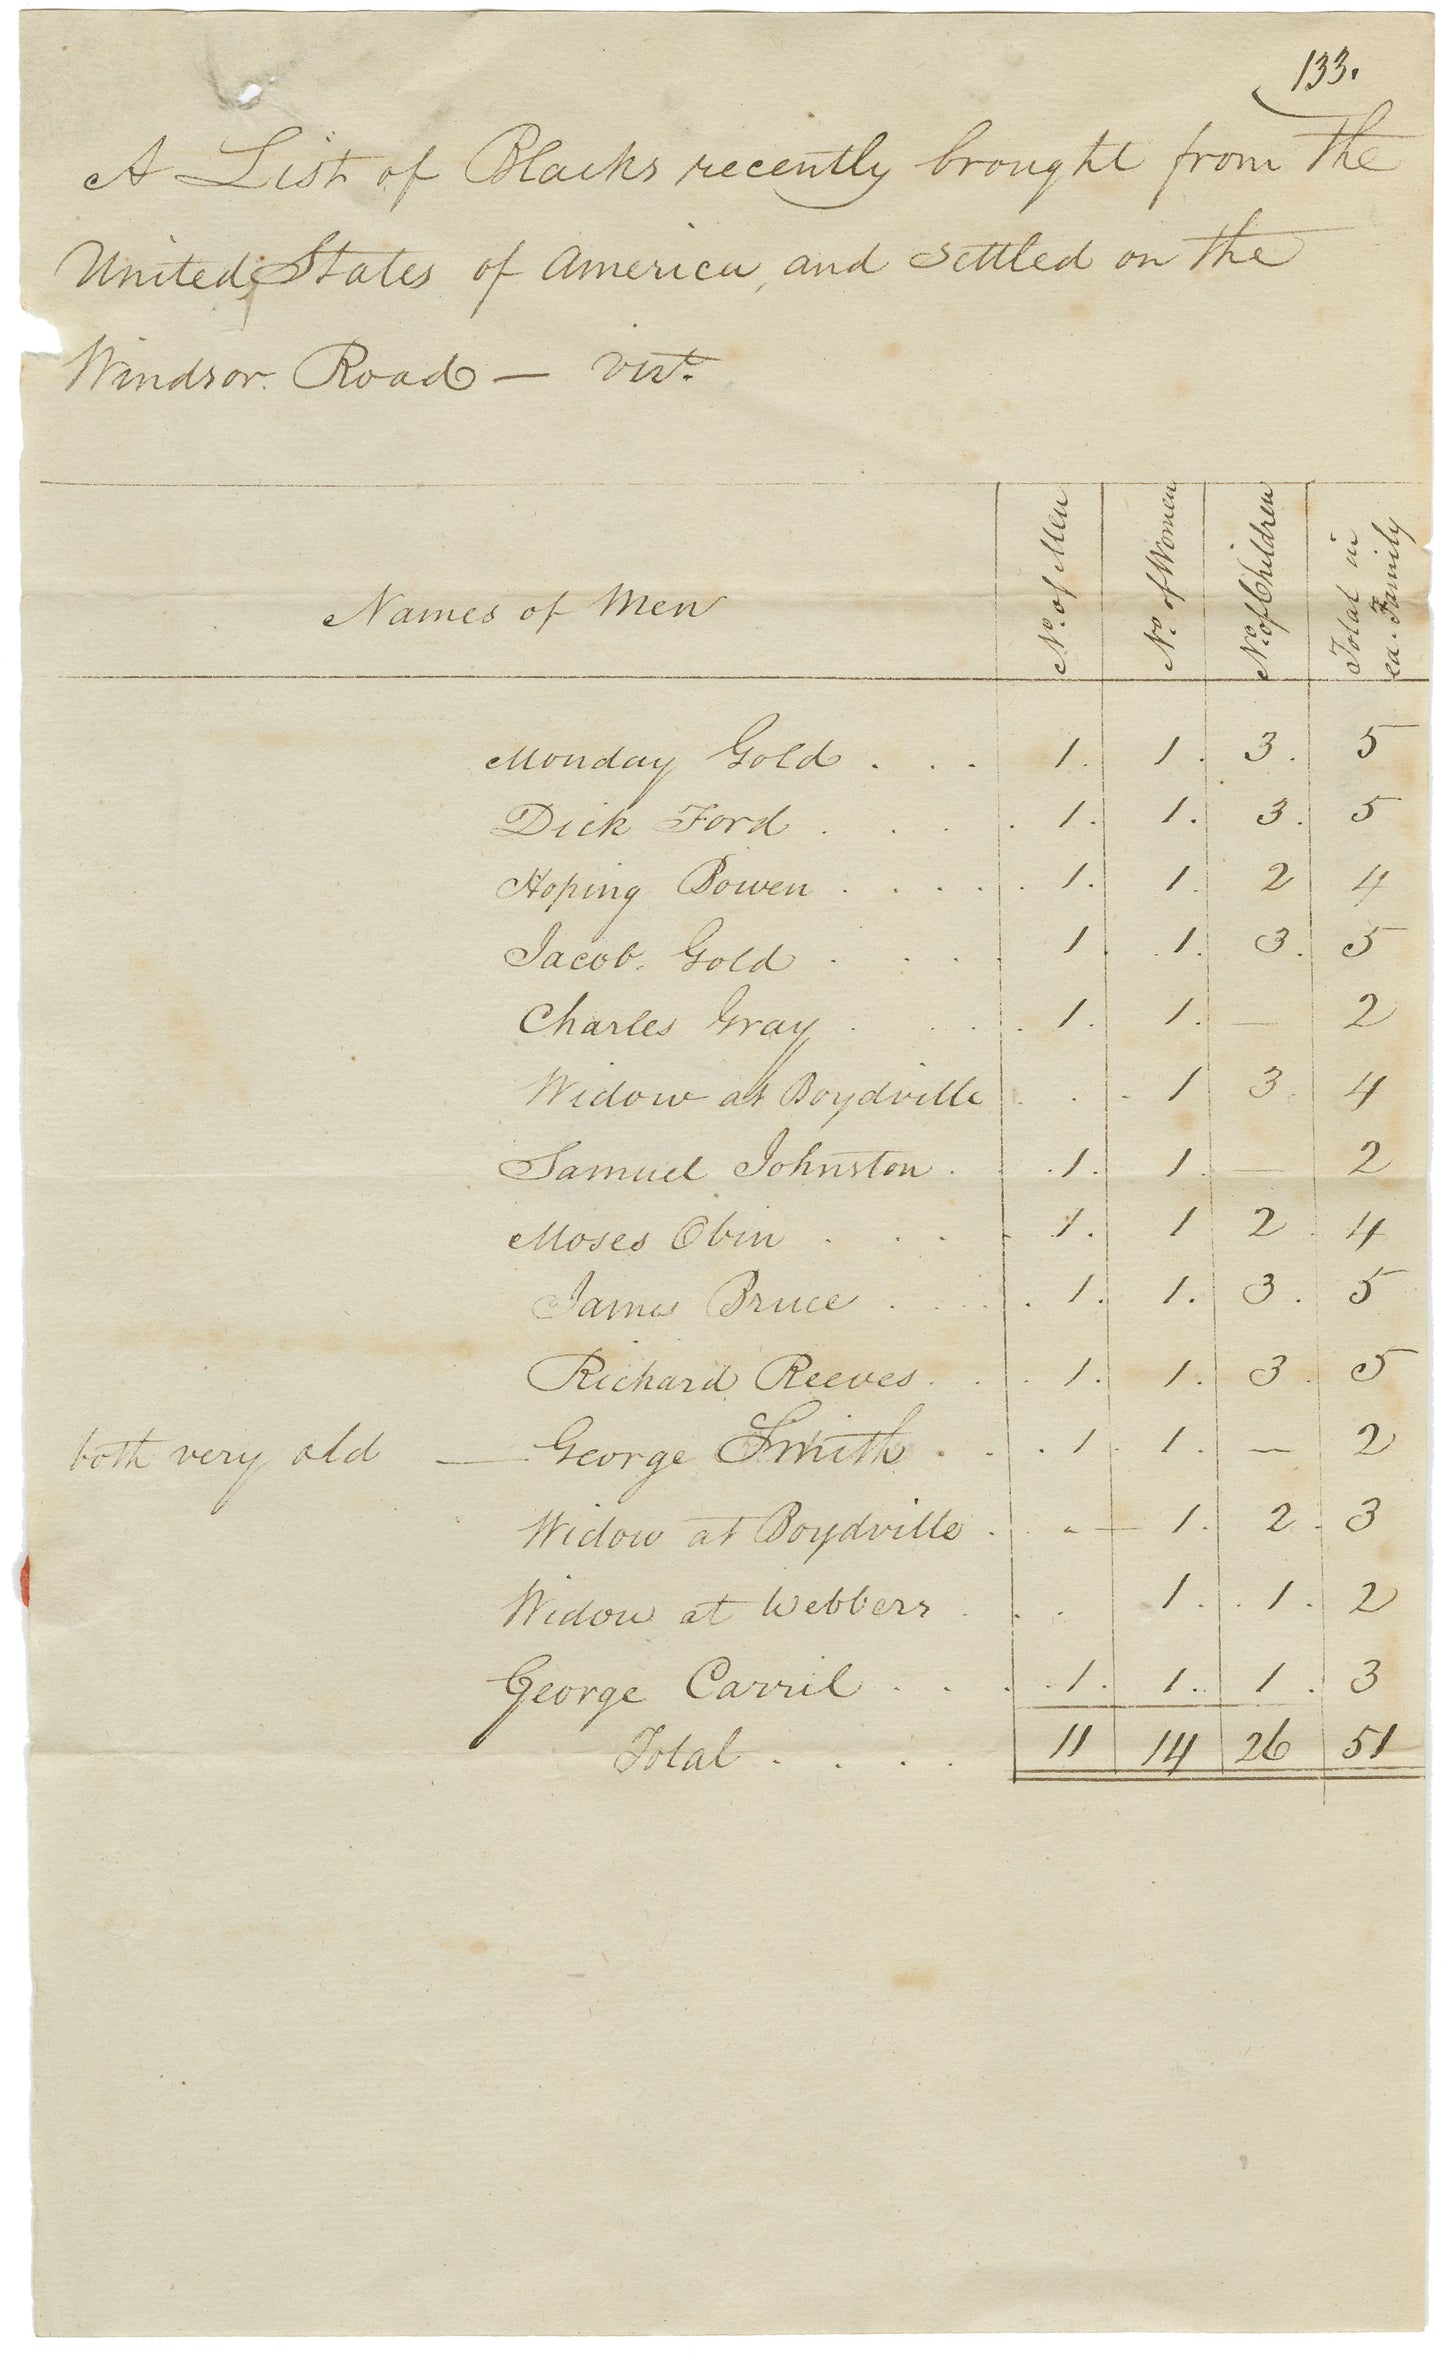 133.
A List of Blacks recently brought from The
United States of America, and settled on the
Windsor Road — vizt.
Names of Men No. of Men No. of Women No. of Children Total in ea. Family
Monday Gold . . . 1. 1. 3. 5
Dick Ford . . . . 1. 1. 3. 5
Hoping Bowen . . . . . 1. 1. 2 4
Jacob Gold . . . . 1. 1. 3. 5
Charles Gray . . . . 1. 1. — 2
Widow at Boydville . . . 1 3. 4
Samuel Johnston . . . 1. 1. — 2
Moses Obin . . . . 1. 1 2. 4
James Bruce . . . . 1. 1. 3. 5
Richard Reeves . . . 1. 1. 3. 5
both very old — George Smith . . . 1. 1. — 2
Widow at Boydville . . - — 1. 2. 3
Widow at Webbers . . . 1. 1. 2
George Carril . . . . 1. 1. 1. 3
Total . . . . 11 14 26 51